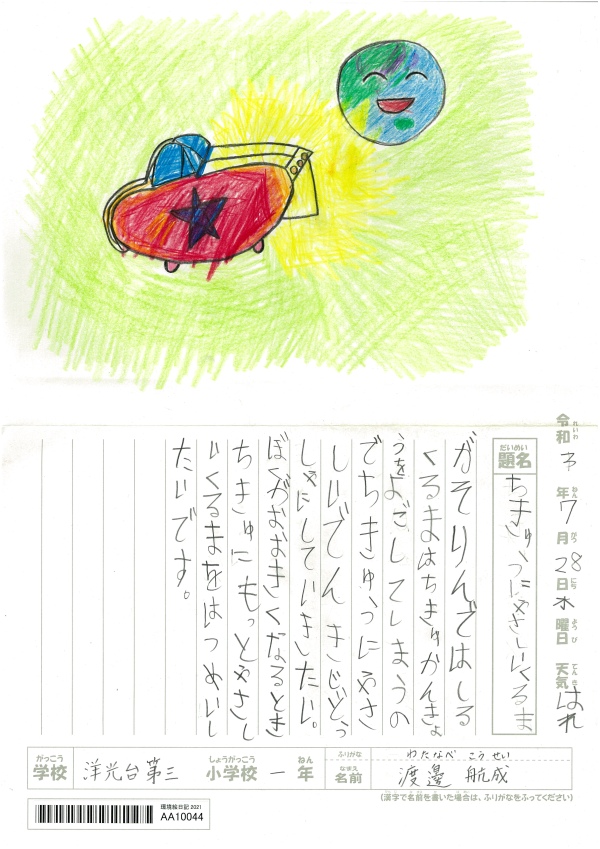 令和3年7月28日水曜日 天気はれ
れいわ ねん がつ にち ようび てんき
だいめい
題名 ちきゅうにやさしいくるま
がそりんではしる
くるまはちきゅかんきょ
うをよごしてしまうの
でちきゅうにやさ
しいでんきじどう
しゃにしていきたい。
ぼくがおおきくなるとき
ちきゅにもっとやさし
いくるまをはつめいし
たいです。
がっこう しょうがっこう ねん ふりがな わたなべ こうせい
学校 洋光台第三 小学校 一 年 なまえ 名前 渡邊 航成
(漢字で名前を書いた場合は、ふりがなをふってください)
環境絵日記 2021
AA10044